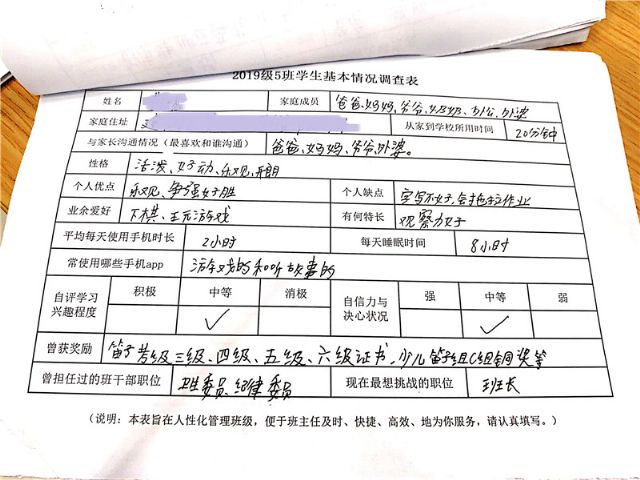 2019级5班学生基本情况调查表
姓名 家庭成员 爸爸、妈妈、爷爷、奶奶、外公、外婆
家庭住址 从家到学校所用时间 20分钟
与家长沟通情况（最喜欢和谁沟通） 爸爸、妈妈、爷爷、外婆。
性格 活泼、好动、乐观、开朗
个人优点 乐观、争强好胜 个人缺点 字写不好、会拖拉作业
业余爱好 下棋、玩游戏 有何特长 观察力好
平均每天使用手机时长 2小时 每天睡眠时间 8小时
常使用哪些手机app 游戏的和听故事的
自评学习兴趣程度 积极 中等 消极 自信力与决心状况 强 中等 弱
✓ ✓
曾获奖励 笛子考级三级、四级、五级、六级证书、少儿笛子组C组铜奖等
曾担任过的班干部职位 卫生委员、纪律委员 现在最想挑战的职位 班长
（说明：本表旨在人性化管理班级，便于班主任及时、快捷、高效、地为你服务，请认真填写。）